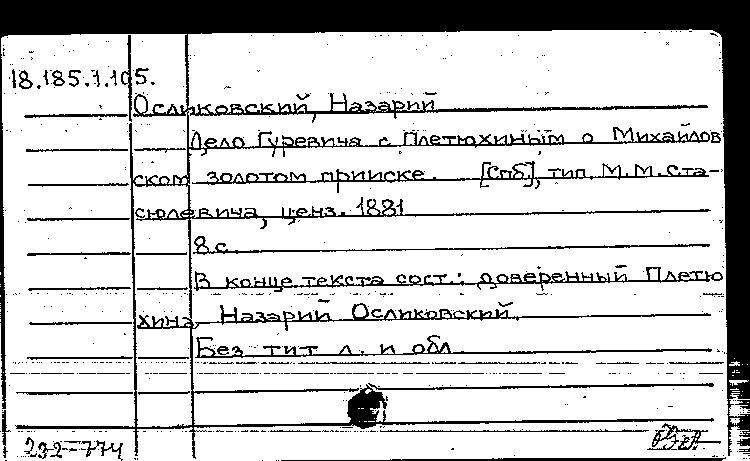 18.185.1.105.
Осликовский, Назарий
Дело Гуревича с Плетюхиным о Михайлов
ском золотом прииске. [Спб], тип. М.М. Ста-
сюлевича, ценз. 1881
8 с.
В конце текста сост.: доверенный Плетю
хина, Назарий Осликовский.
Без тит л. и обл
232-774